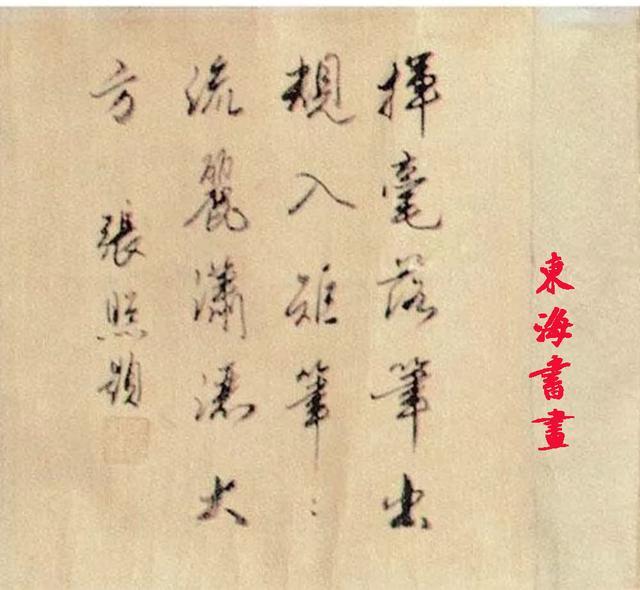 東海書畫
揮毫落筆出
規入矩筆：
流麗瀟灑大
方 張照題